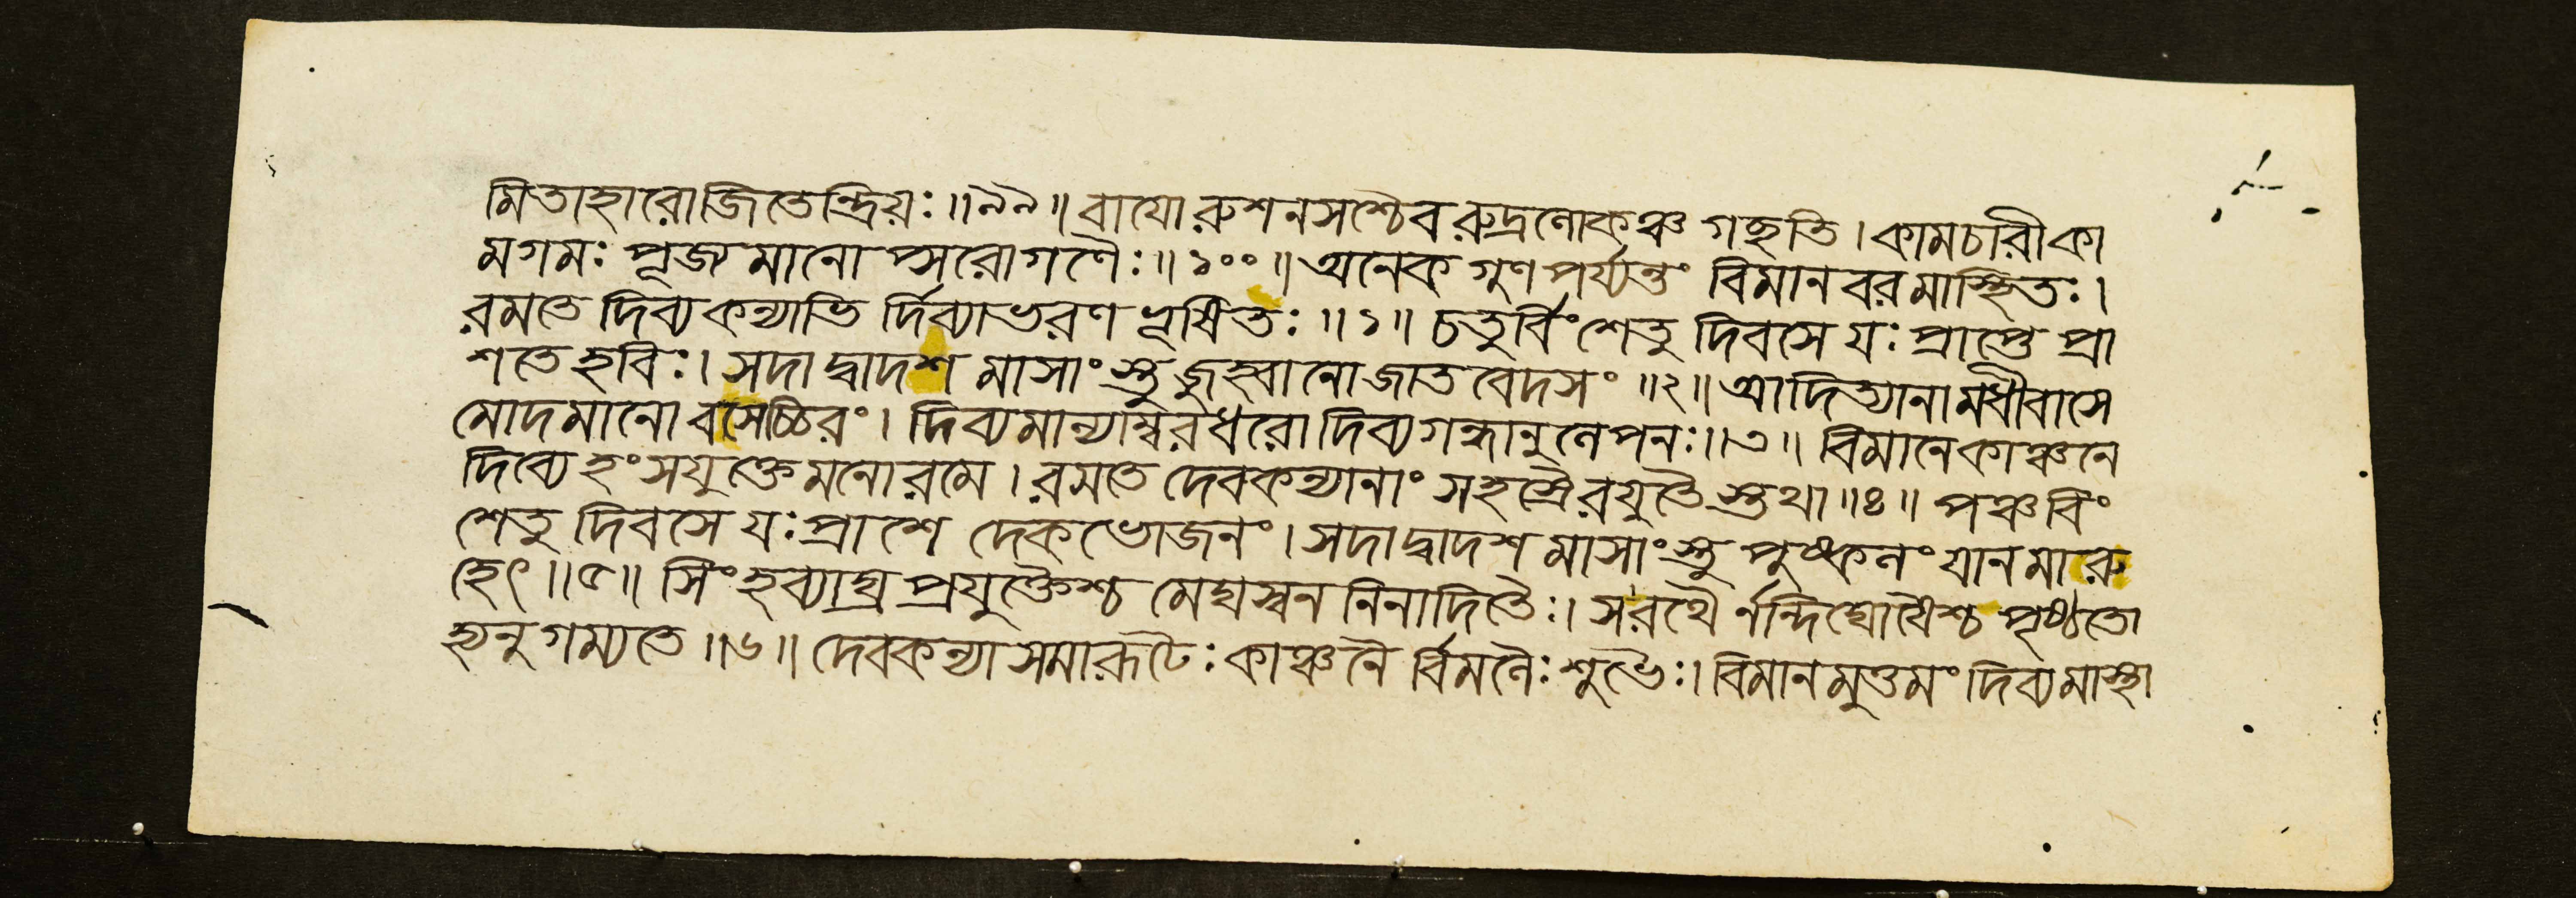 মিতাহারোজিতেন্দ্রিয়ঃ ॥ ৯৯ ॥ বাযোরুশনসশ্চৈবরুদ্রলোকঞ্চগচ্ছতি । কামচারীকা
মগমঃ পূজ্যমানোপ্সরোগণৈঃ ॥ ১০০ ॥ অনেকগুণপর্য্যন্তং বিমানবরমাস্থিতঃ ।
রমতে দিব্যকন্যাভি র্দিব্যাভরণভূষিতঃ ॥ ১ ॥ চতুর্বিংশেতু দিবসে যঃ প্রাপ্তে প্রা
শতে হবিঃ । সদা দ্বাদশ মাসাংস্তু জুহ্বানোজাতবেদসং ॥ ২ ॥ আদিত্যানামধীবাসে
মোদমানো বসেচ্চিরং । দিব্যমাল্যাম্বরধরোদিব্যগন্ধানুলেপনঃ ॥ ৩ ॥ বিমানেকাঞ্চনে
দিব্যে হংসযুক্তেমনোরমে । রমতে দেবকন্যানাং সহস্রৈরযুতৈস্তথা ॥ ৪ ॥ পঞ্চবিং
শেতু দিবসে যঃ প্রাশে দেকভোজনং । সদাদ্বাদশ মাসাংস্তু পুষ্কলং যানমারু
হেৎ ॥ ৫ ॥ সিংহব্যাঘ্র প্রযুক্তৈশ্চ মেঘস্বন নিনাদিতৈঃ । সরথৈ র্নন্দিঘোষৈশ্চ পৃষ্ঠতো
হ্যনুগম্যতে ॥ ৬ ॥ দেবকন্যা সমারূঢৈঃ কাঞ্চনৈ র্বিমলৈঃ শুভৈঃ । বিমানমুত্তমং দিব্যমাস্থা